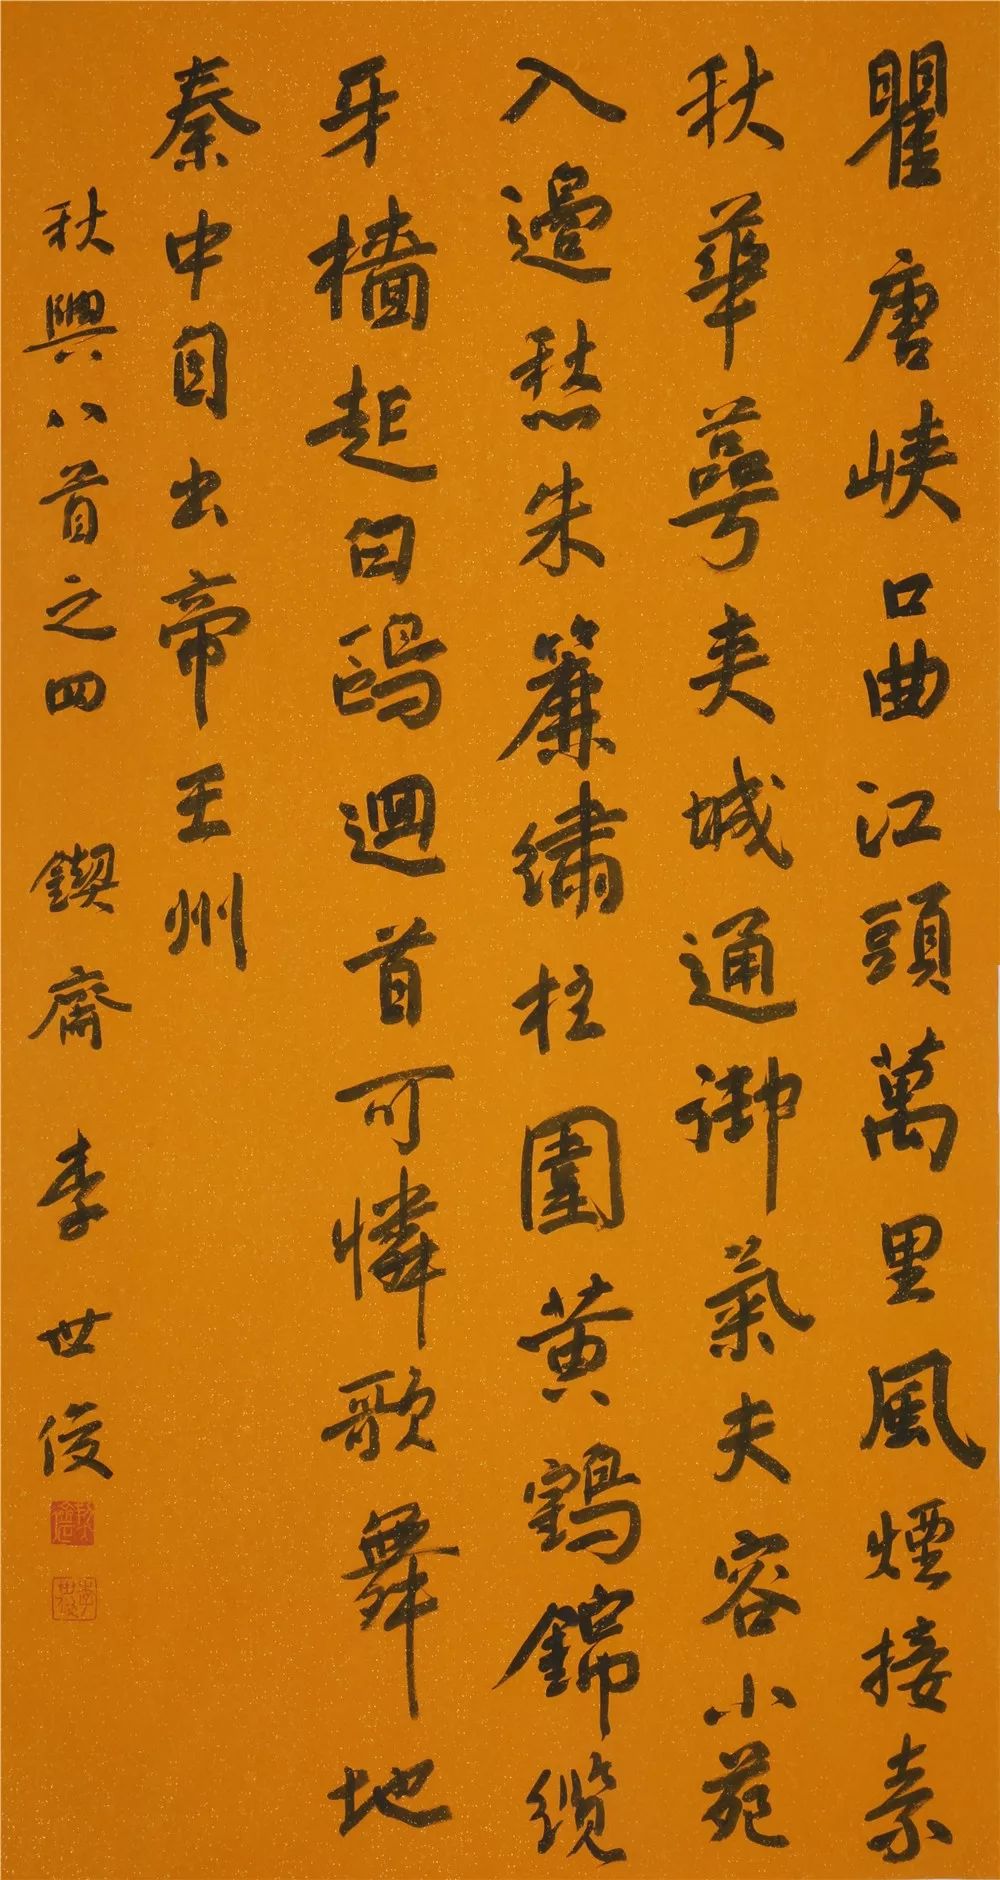 瞿唐峽口曲江頭萬里風煙接素
秋華萼夹城通御氣夫容小苑
入邊愁朱簾繡柱圍黄鶴錦纜
牙檣起白鷗迴首可憐歌舞地
秦中自古帝王州
秋興八首之四 鍥齋 李世俊
李世俊